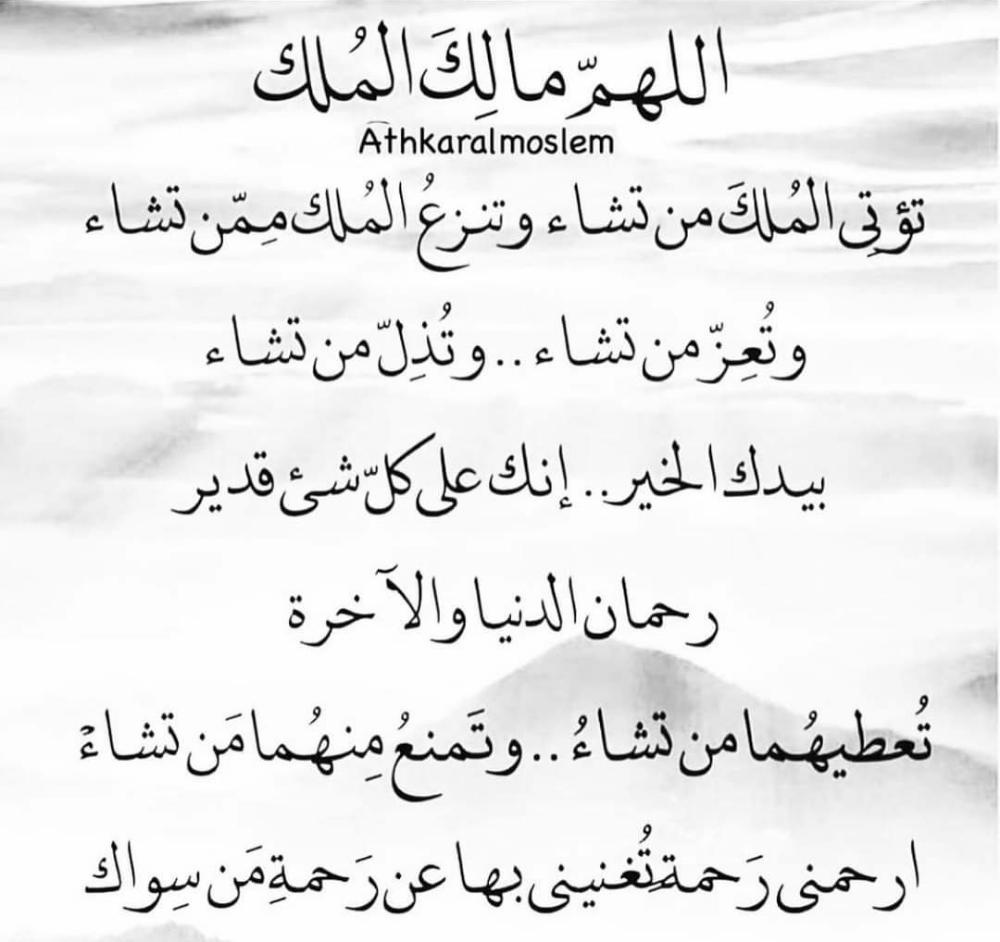 اللهمّ مالِكَ المُلك
Athkaralmoslem
تؤتِي المُلكَ من تشاء وتنزعُ المُلك مِمّن تشاء
وتُعِزّ من تشاء .. وتُذِلّ من تشاء
بيدك الخير .. إنك على كلّ شئ قدير
رحمان الدنيا والآخرة
تُعطيهُما من تشاءُ .. وتَمنعُ مِنهُما مَن تشاءُ
ارحمنى رَحمةً تُغنينى بها عن رَحمةِ مَن سِواك